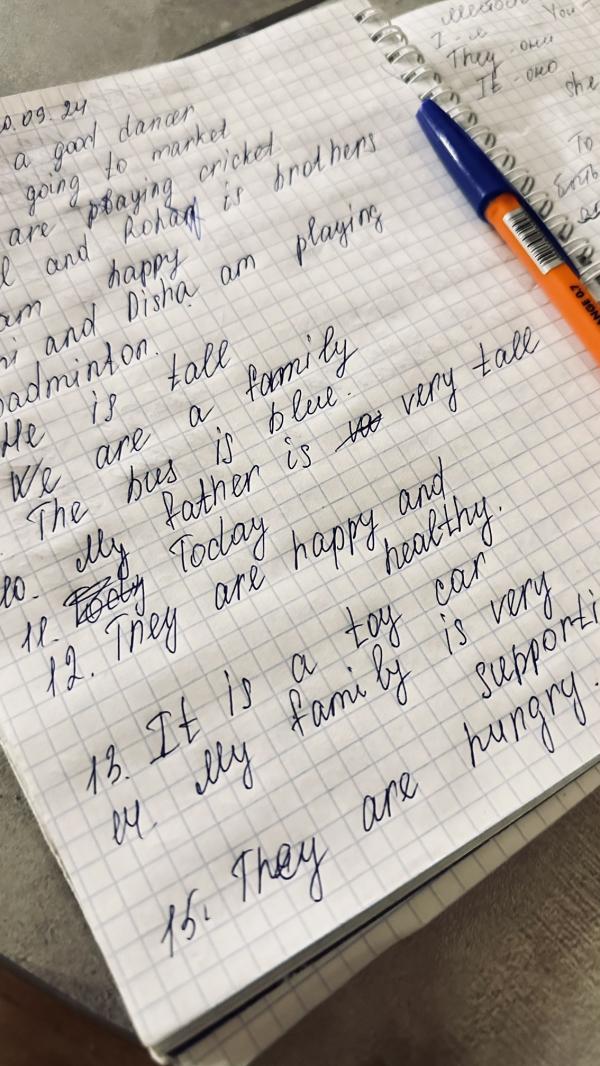 0.09.24
a good dancer
going to market
are playing cricket
and Rohan is brothers
am happy
and Disha am playing
badminton.
He is tall
We are a family
The bus is blue.
10. My father is very tall
11. Today
12. They are happy and
healthy.
13. It is a toy car
14. My family is very
supporti
15. They are hungry.
You
I - я
They - они
It - оно
she
To
ANGE 0.7